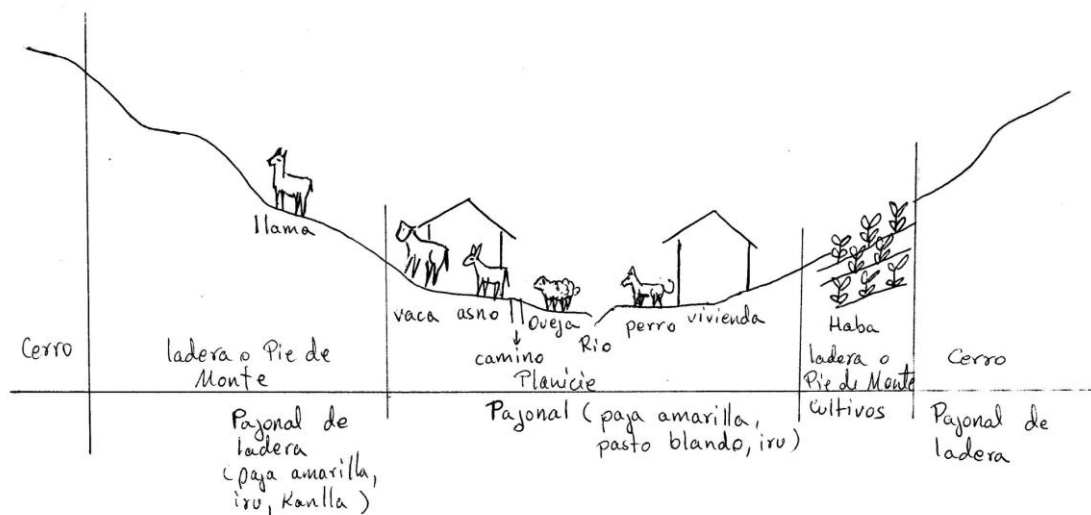 llama
vaca asno
Oveja
perro
vivienda
camino
Río
Haba
Cerro
ladera o Pie de
Monte
Planicie
ladera o
Pie de Monte
Cultivos
Cerro
Pajonal de
ladera
(paja amarilla,
iru, Kanlla)
Pajonal (paja amarilla,
pasto blando, iru)
Pajonal de
ladera